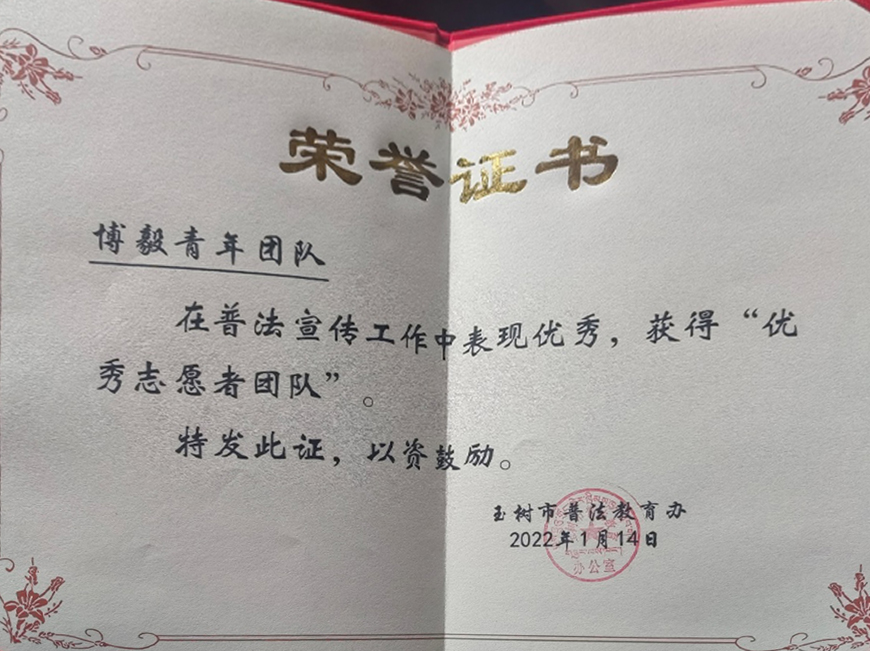 荣誉证书
博毅青年团队
在普法宣传工作中表现优秀，获得“优
秀志愿者团队”。
特发此证，以资鼓励。
玉树市普法教育办
2022年1月14日
办公室